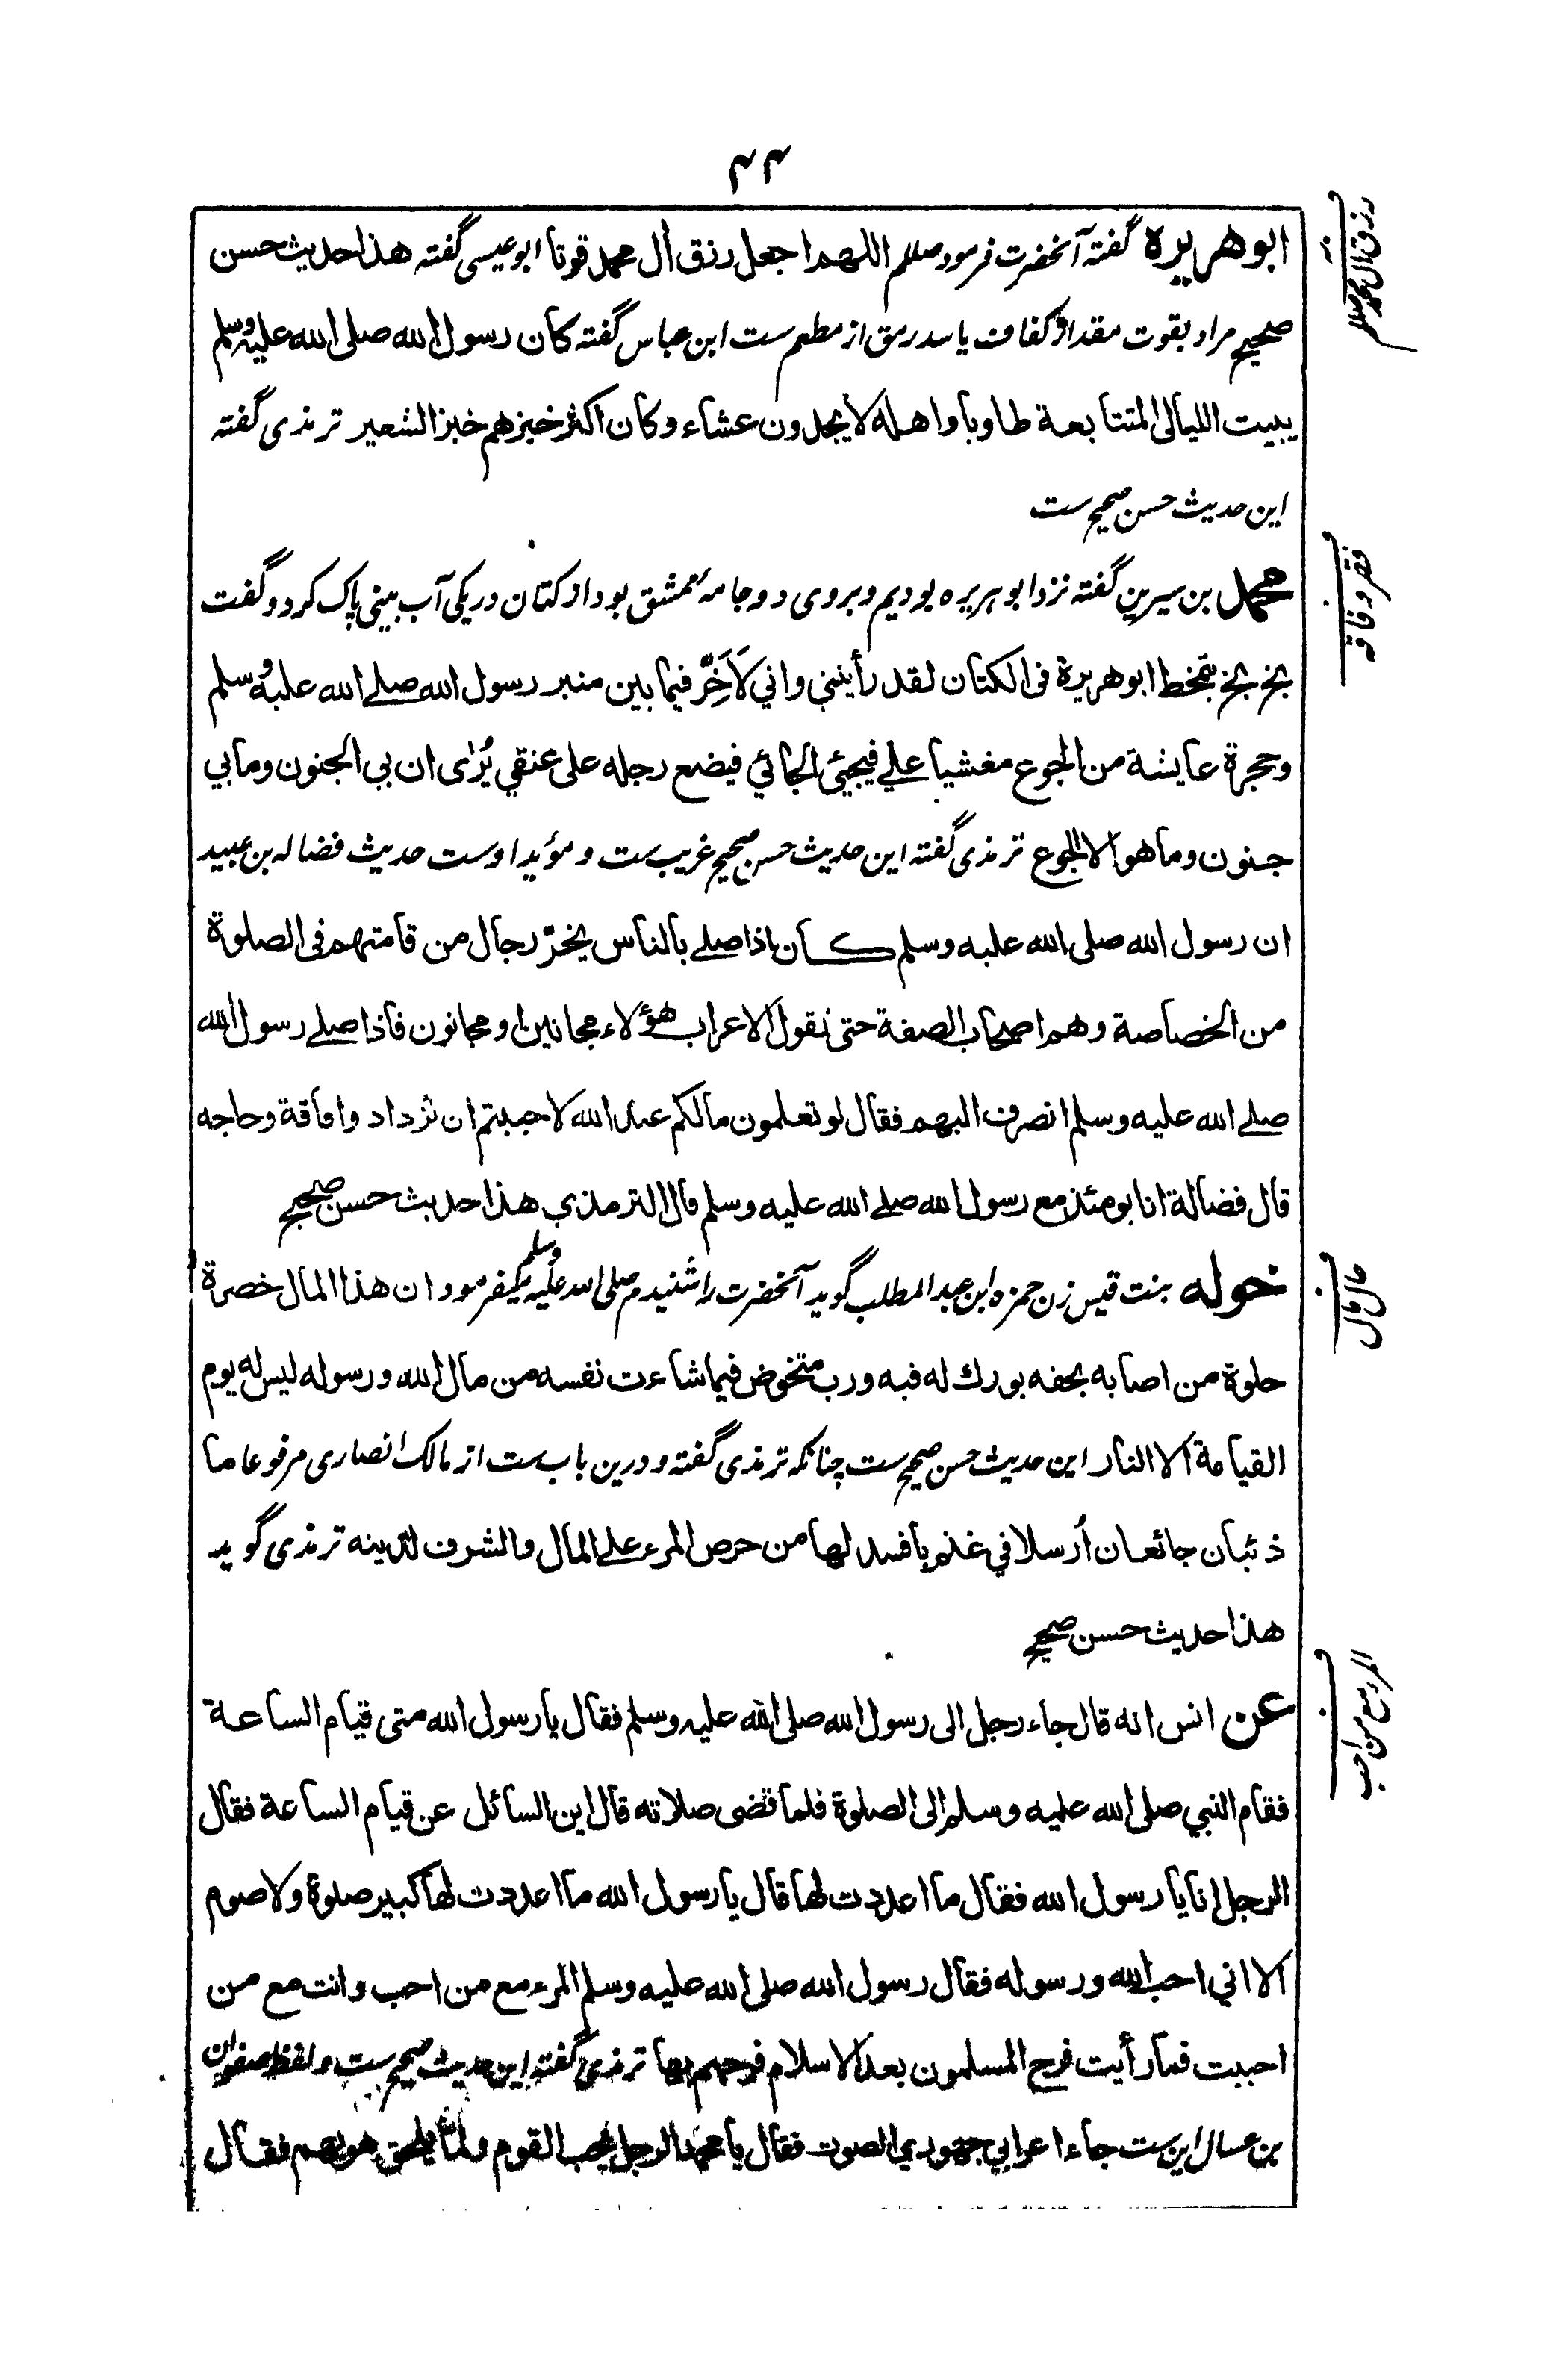 ۴۴
ابوهریرة گفته آنحضرت فرمود صللم اللهم اجعل رزق ال محمد قوتا ابوعیسی گفته هذا حدیث حسن
صحیح مراد بقوت مقدار کفاف یا سد رمق از مطعم ست ابن عباس گفته کان رسول الله صلی الله علیه وسلم
یبیت اللیالی المتتابعة طاویا واهله لا یجدون عشاء وکان اکثر خبزهم خبز الشعیر ترمذی گفته
این حدیث حسن صحیح ست
محمد بن سیرین گفته نزد ابوهریره بودیم و بروی دو جامۂ ممشق بود از کتان در یکی آب بینی پاک کرد و گفت
بخ بخ یتمخط ابوهریرة فی الکتان لقد رأیتنی وانی لَاَخِرُّ فیما بین منبر رسول الله صلے الله علیه وسلم
وحجرة عایشة من الجوع مغشیا علی فیجیئ الجائی فیضع رجله علی عنقی یُرٰی ان بی الجنون وما بی
جنون وما هو الا الجوع ترمذی گفته این حدیث حسن صحیح غریب ست و مؤید اوست حدیث فضاله بن عبید
ان رسول الله صلی الله علیه وسلم کان اذا صلے بالناس یخرّ رجال من قامتهم فی الصلوة
من الخصاصة وهم اصحاب الصفة حتی تقول الاعراب هؤلاء مجانین او مجانون فاذا صلے رسول الله
صلے الله علیه وسلم انصرف الیهم فقال لو تعلمون مالکم عند الله لاحببتم ان تزدادوا فاقة وحاجه
قال فضالة انا یومئذ مع رسول الله صلے الله علیه وسلم قال الترمذی هذا حدیث حسن صحیح
خوله بنت قیس زن حمزه ابن عبد المطلب گوید آنحضرت را شنیدم صلی الله علیه وسلم میفرمود ان هذا المال خضرة
حلوة من اصابه بحقه بورك له فیه ورب متخوض فیما شاءت نفسه من مال الله ورسوله لیس له یوم
القیامة الا النار این حدیث حسن صحیح ست چنانکه ترمذی گفته و درین باب ست از مالک انصاری مرفوعا ما
ذئبان جائعان اُرسلا فی غنم بافسد لها من حرص المرء علے المال والشرف لدینه ترمذی گوید
هذا حدیث حسن صحیح
عن انس انه قال جاء رجل الی رسول الله صلی الله علیه وسلم فقال یا رسول الله متی قیام الساعة
فقام النبی صلی الله علیه وسلم الی الصلوة فلما قضی صلاته قال این السائل عن قیام الساعة فقال
الرجل انا یا رسول الله فقال ما اعددت لها قال یا رسول الله ما اعددت لها کبیر صلوة ولا صوم
الا انی احب الله ورسوله فقال رسول الله صلی الله علیه وسلم المرء مع من احب وانت مع من
احببت فما رأیت فرح المسلمون بعد الاسلام فرحهم بها ترمذی گفته این حدیث صحیح ست و لفظ صفوان
بن عسال این ست جاء اعرابی جهوری الصوت فقال یا محمد الرجل یحب القوم ولما یلحق هو بهم فقال
رزق ال محمد صللم
فقر و فاقه
مال
المرء مع من احب